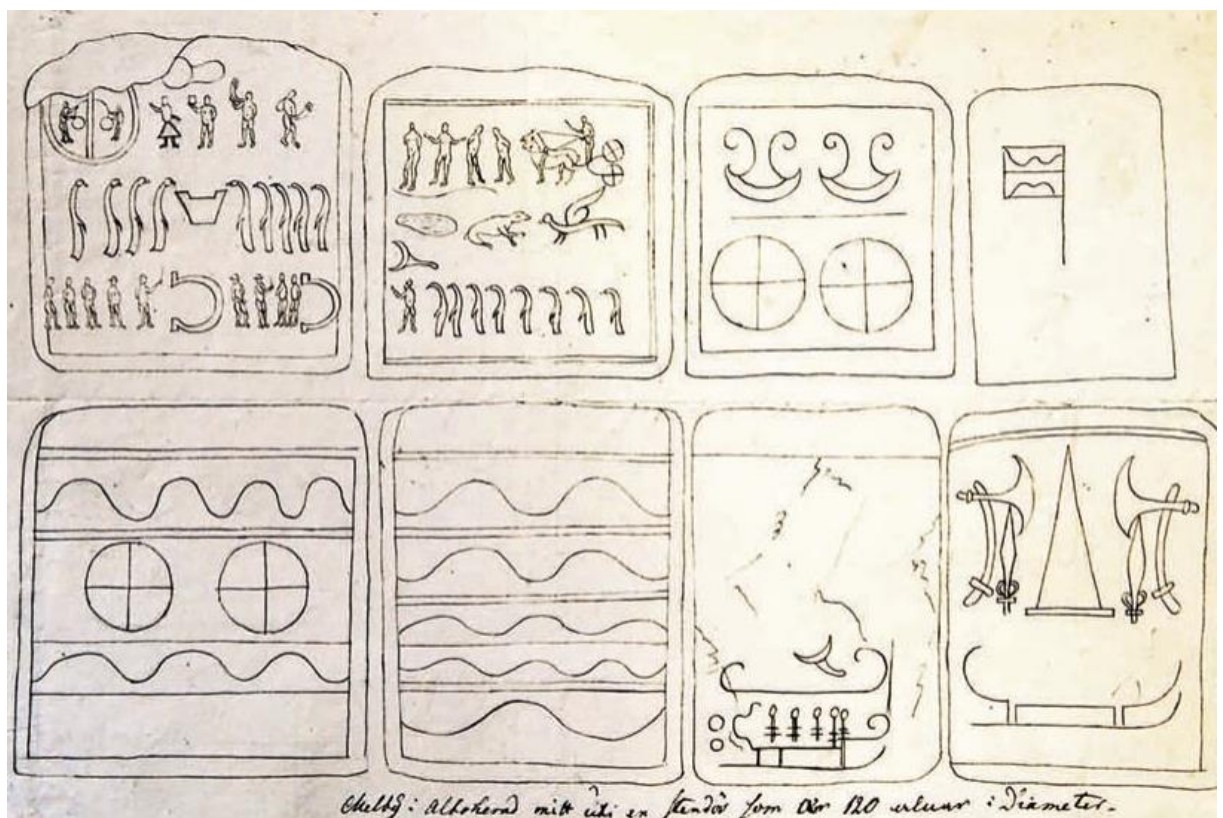 Mellby i Alboherad mitt uti en stenrör som är 120 alnar i Diameter.